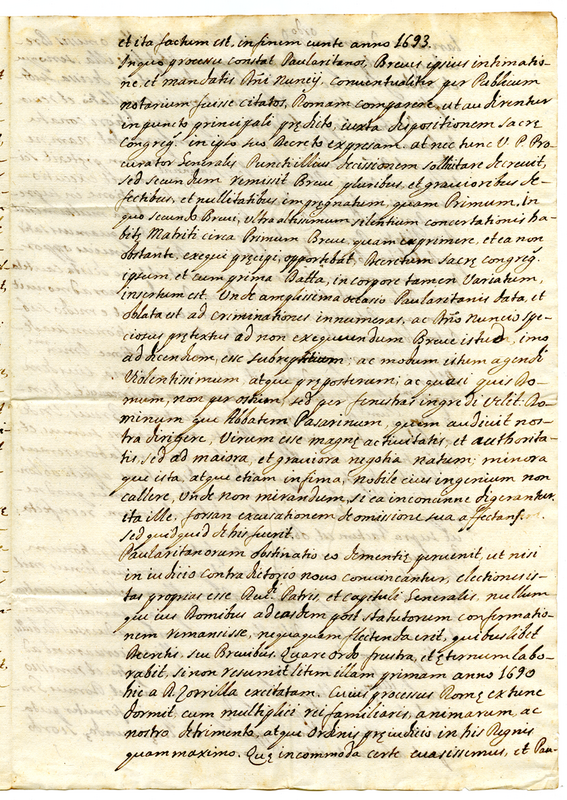 et ita factum est, in finem cunte anno 1693.
In quo processu constat Paularitanos, Brevis ipsius intimatio-
ne, et mandatis Rmi Nuncij, conventualiter per Publicum
notarium fuisse citatos, Romam comparere, ut audirentur
in puncto principali prędicto, iuxta dispositionem sacrę
Congreg. in ipso suo Decreto expresam. at nec tunc V. P. Pro-
curator Generalis Renet illius decissionem sollicitare decrevit,
sed secundum remissit Breve pluribus, et gravioribus de-
fectibus, et nullitatibus, imprę̨gnatum, quam Primum, in
quo secundo Brevi, ultra altissimum silentium concertationis ha-
bitę Matriti circa Primum Breve, quam exprimere, et ea non
obstante, exequi pręcipi, opportebat, Decretum sacrę congreg.
ipsum, et cum prima Datta, in corpore tamen Variatum,
insertum est. Unde amplissima occasio Paularitanis data, et
oblata est ad criminationes innumeras, ac Rmo Nuncio spe-
ciosus prętextus ad non exequendum Breve istud, imo
ad dicendum, esse subreptitium; ac modum istum agendi
Violentissimum, atque pręposterum; ac quasi quis Do-
mum, non per ostium, sed per fenestras ingredi velit. Do-
minum que Abbatem Pasarinum, quem audivit nos-
tra dirigere, Virum esse magnę activitatis, et authorita-
tis, sed ad maiora, et graviora negotia natum; minora
que ista, atque etiam infima, nobile eius ingenium non
callere, Unde non mirandum, si ea inconcinne digerantur,
ita ille, forsan excusationem de omissione sua affectans.
sed quidquid de his fuerit.
Paularitanorum obstinatio eo dementię pervenit, ut nisi
in iudicio contradictorio novo convincantur, electiones is-
tas proprias esse Rdi. Patris, et capituli Generalis, nullum
que ius Domibus ad easdem post statutorum confirmatio-
nem remansisse, nequaquam flectenda erit, quibuslibet
Decretis, seu Brevibus. Quare ordo frustra, et ęternum labo-
rabit, si non resumit litem illam primam anno 1690
hic a P. Jorrilla excitatam. Cuius processus Romę ex tunc
dormit, cum multiplici rei familiaris, animarum, ac
nostro detrimento, atque Ordinis pręiudicio in his Regnis
quam maximo. Quę incommoda certe evasissemus, et Pau-